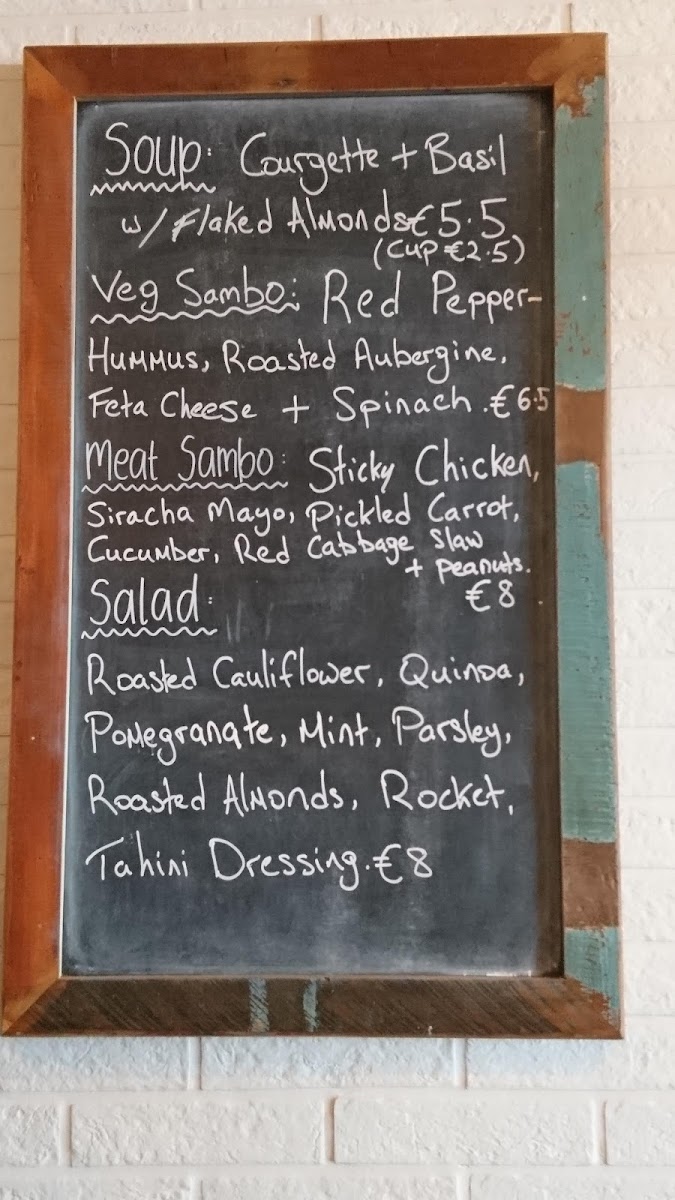 Soup: Courgette + Basil
w/ Flaked Almonds €5.5
(Cup €2.5)
Veg Sambo: Red Pepper-
Hummus, Roasted Aubergine,
Feta Cheese + Spinach. €6.5
Meat Sambo: Sticky Chicken,
Siracha Mayo, Pickled Carrot,
Cucumber, Red Cabbage Slaw
+ Peanuts.
€8
Salad:
Roasted Cauliflower, Quinoa,
Pomegranate, Mint, Parsley,
Roasted Almonds, Rocket,
Tahini Dressing. €8